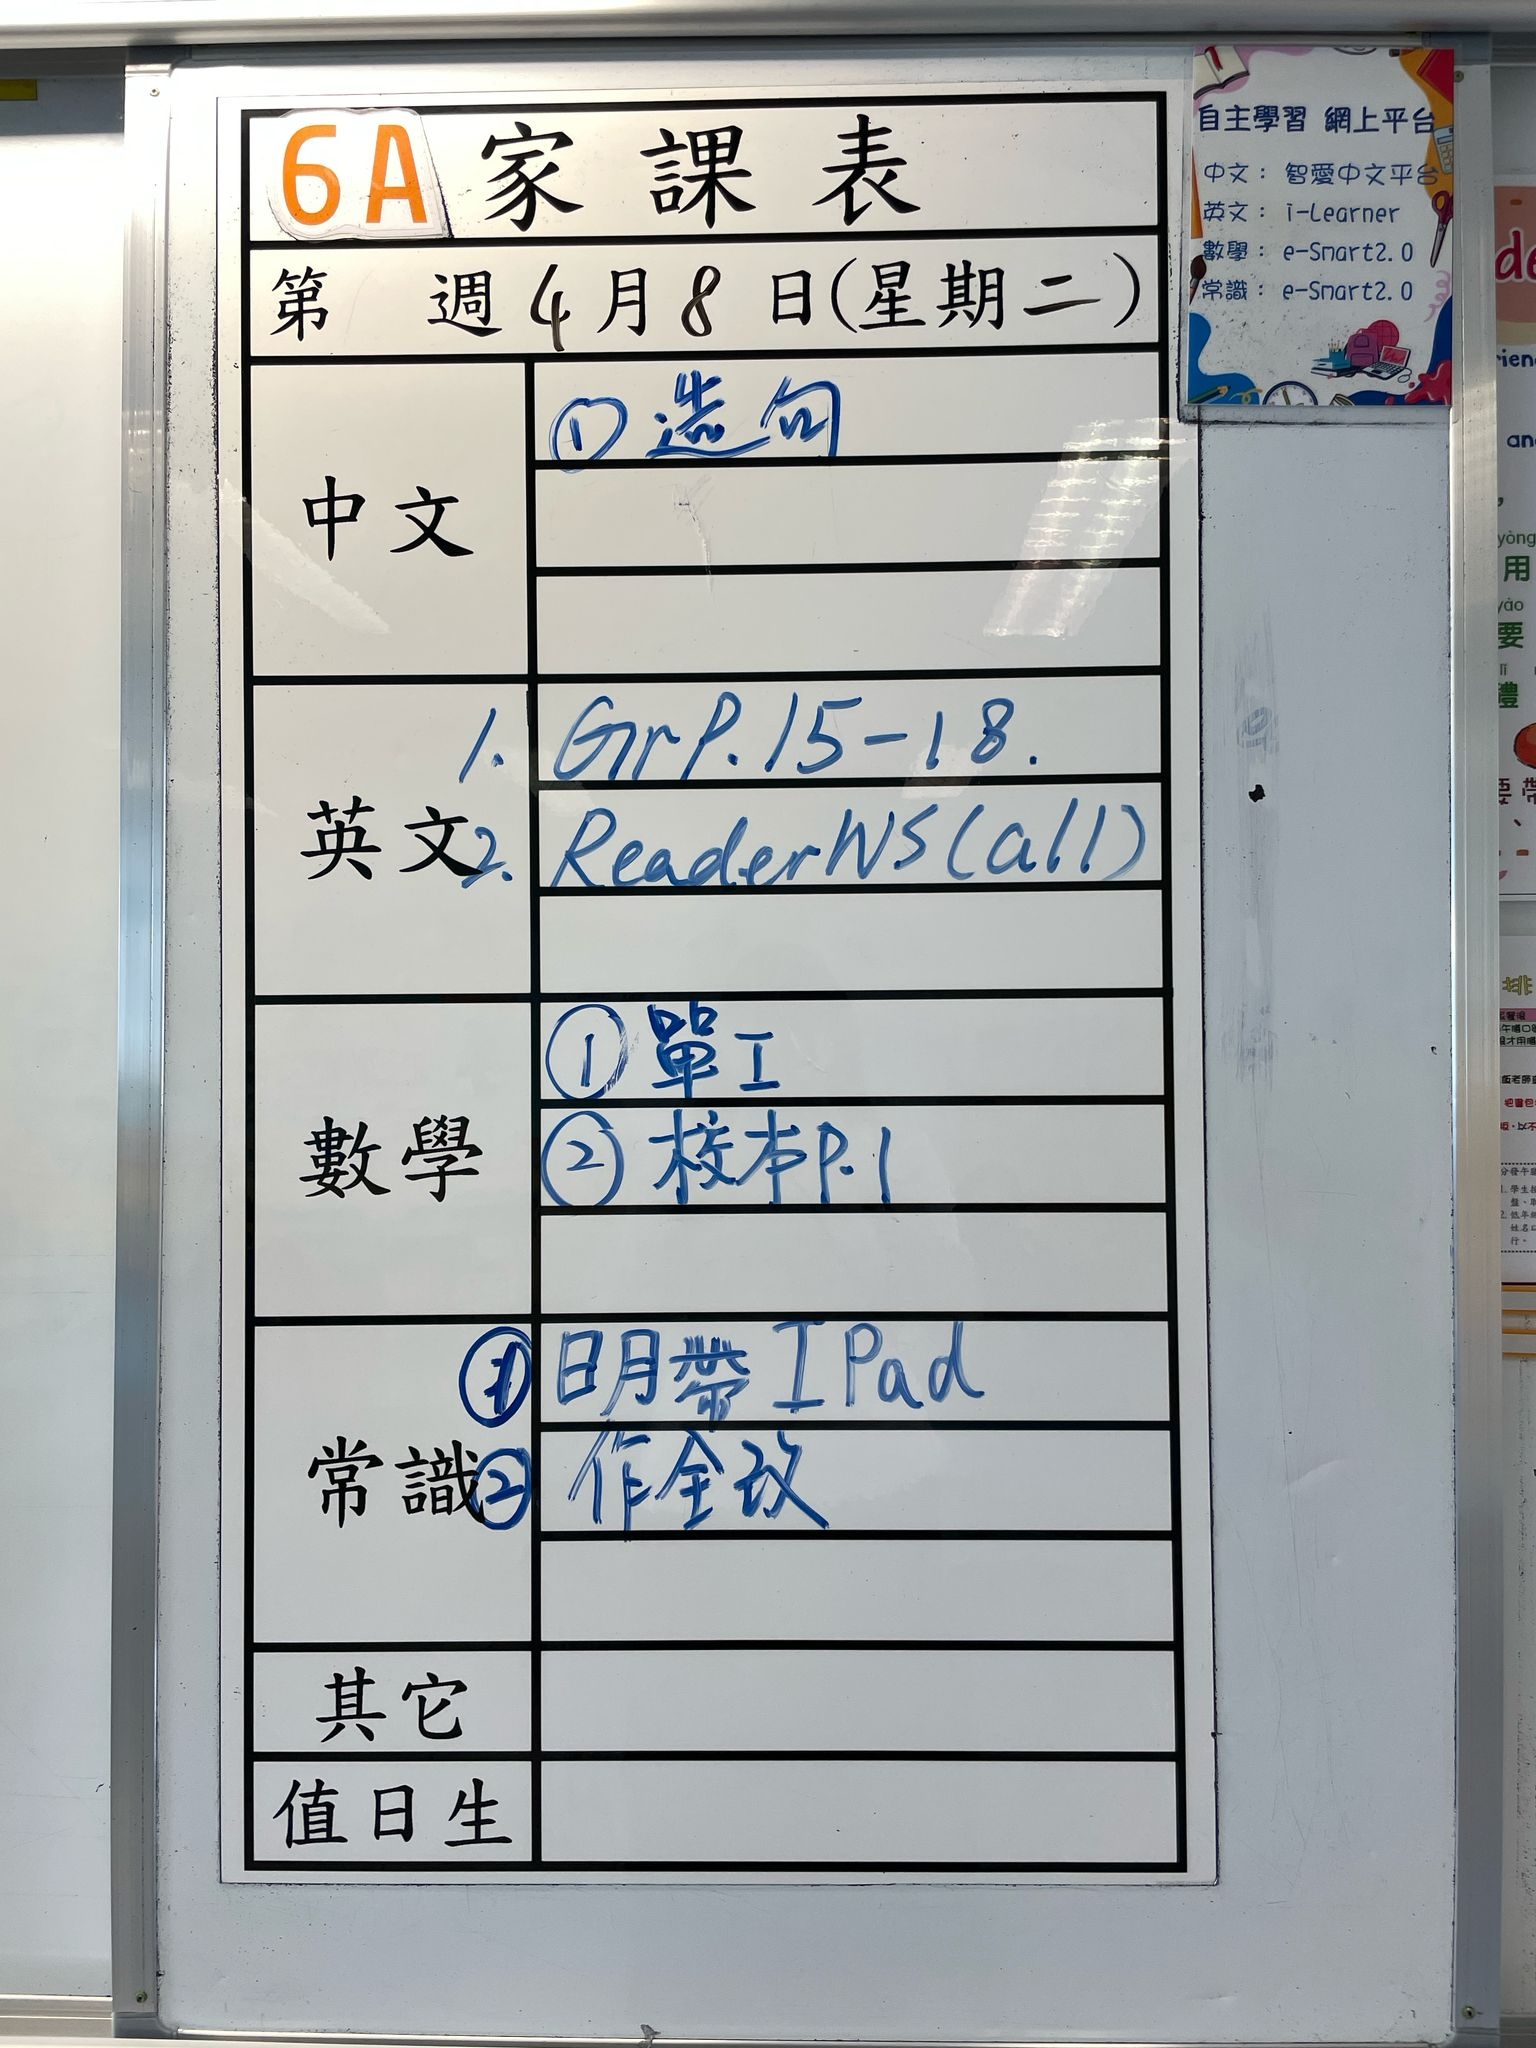 6A 家課表
第 週 4 月 8 日(星期二)
中文
① 造句
英文
1. Gr P. 15-18.
2. Reader WS (all)
數學
① 單I
② 校本P.1
常識
① 明帶 I Pad
② 作全改
其它
值日生
自主學習 網上平台
中文: 智愛中文平台
英文: i-Learner
數學: e-Smart2.0
常識: e-Smart2.0
yòng
用
yào
要
lǐ
禮